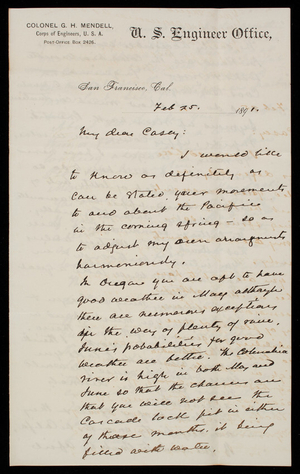 COLONEL G. H. MENDELL,
Corps of Engineers, U. S. A.
POST-OFFICE BOX 2426.
U. S. Engineer Office,
San Francisco, Cal.
Feb 25. 1891.
My dear Casey:
I would like
to know as definitely as
can be stated your movements
to and about the Pacific
in the coming spring - so as
to adjust my own arrangements
harmoniously.
In Oregon you are apt to have
good weather in May although
there are numerous exceptions
in the way of plenty of rain.
June's probabilities for good
weather are better. The Columbia
river is high in both May and
June so that the chances are
that you will not see the
Cascade lock pit in either
of those months. it being
filled with water.